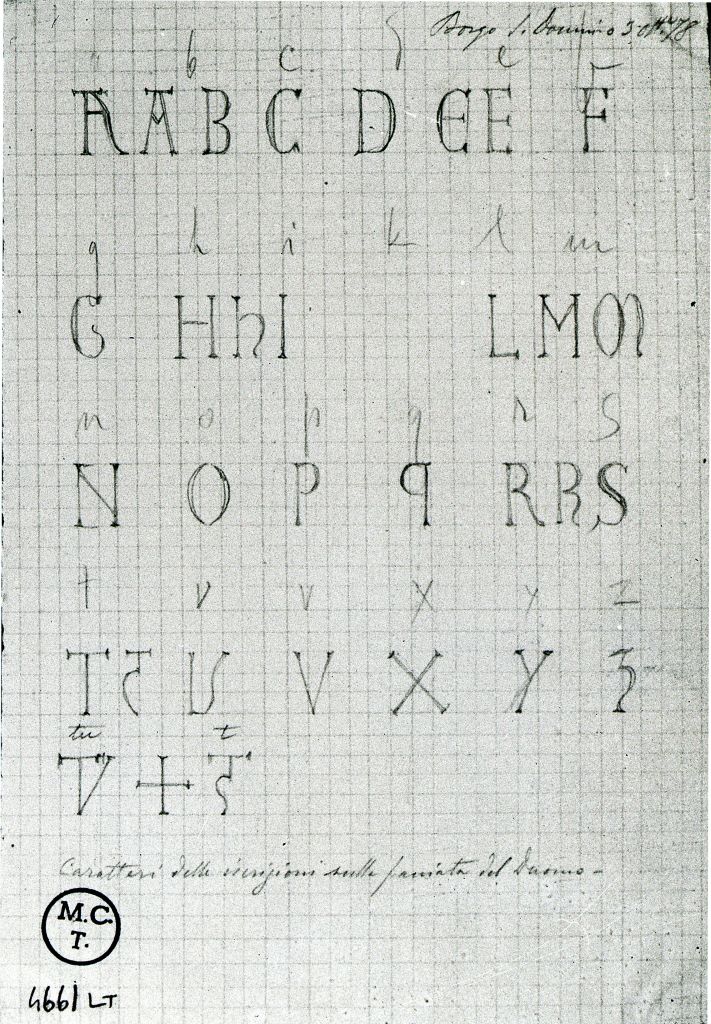 Borgo S. Donnino 3 8tte 78
a b c d e f
A A B C D E E F
g h i k l m
G H h I L M M
n o p q r S
N O P q R R S
t v v x y z
T T U V X Y Z
tu t
TV + T
Caratteri delle iscrizioni sulla facciata del Duomo -
M.C.
T.
4661 LT